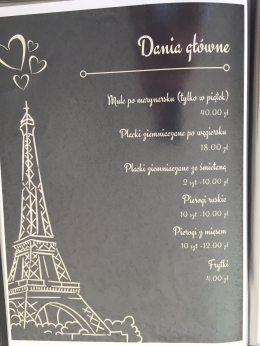 Dania główne
Mule po marynarsku (tylko w piątek)
40.00 zł
Placki ziemniaczane po węgiersku
18.00 zł
Placki ziemniaczane ze śmietaną
2 szt -10.00 zł
Pierogi ruskie
10 szt -10.00 zł
Pierogi z mięsem
10 szt -12.00 zł
Frytki
4.00 zł